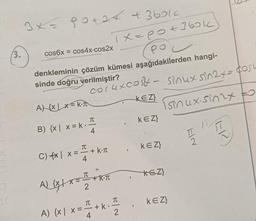 3x = 90+2x+360k
x = 90+360k
90
3.
cos6x = cos4x·cos2x
denkleminin çözüm kümesi aşağıdakilerden hangi-
sinde doğru verilmiştir?
cos4xcos2x - sinux sin2x = cos
A) {x | x = k·π , k∈Z}
sinux·sin2x = 0
B) {x | x = k · π/4 , k∈Z}
C) {x | x = π/4 + k·π , k∈Z}
A) {x | x = π/2 + k·π , k∈Z}
A) {x | x = π/4 + k · π/2 , k∈Z}